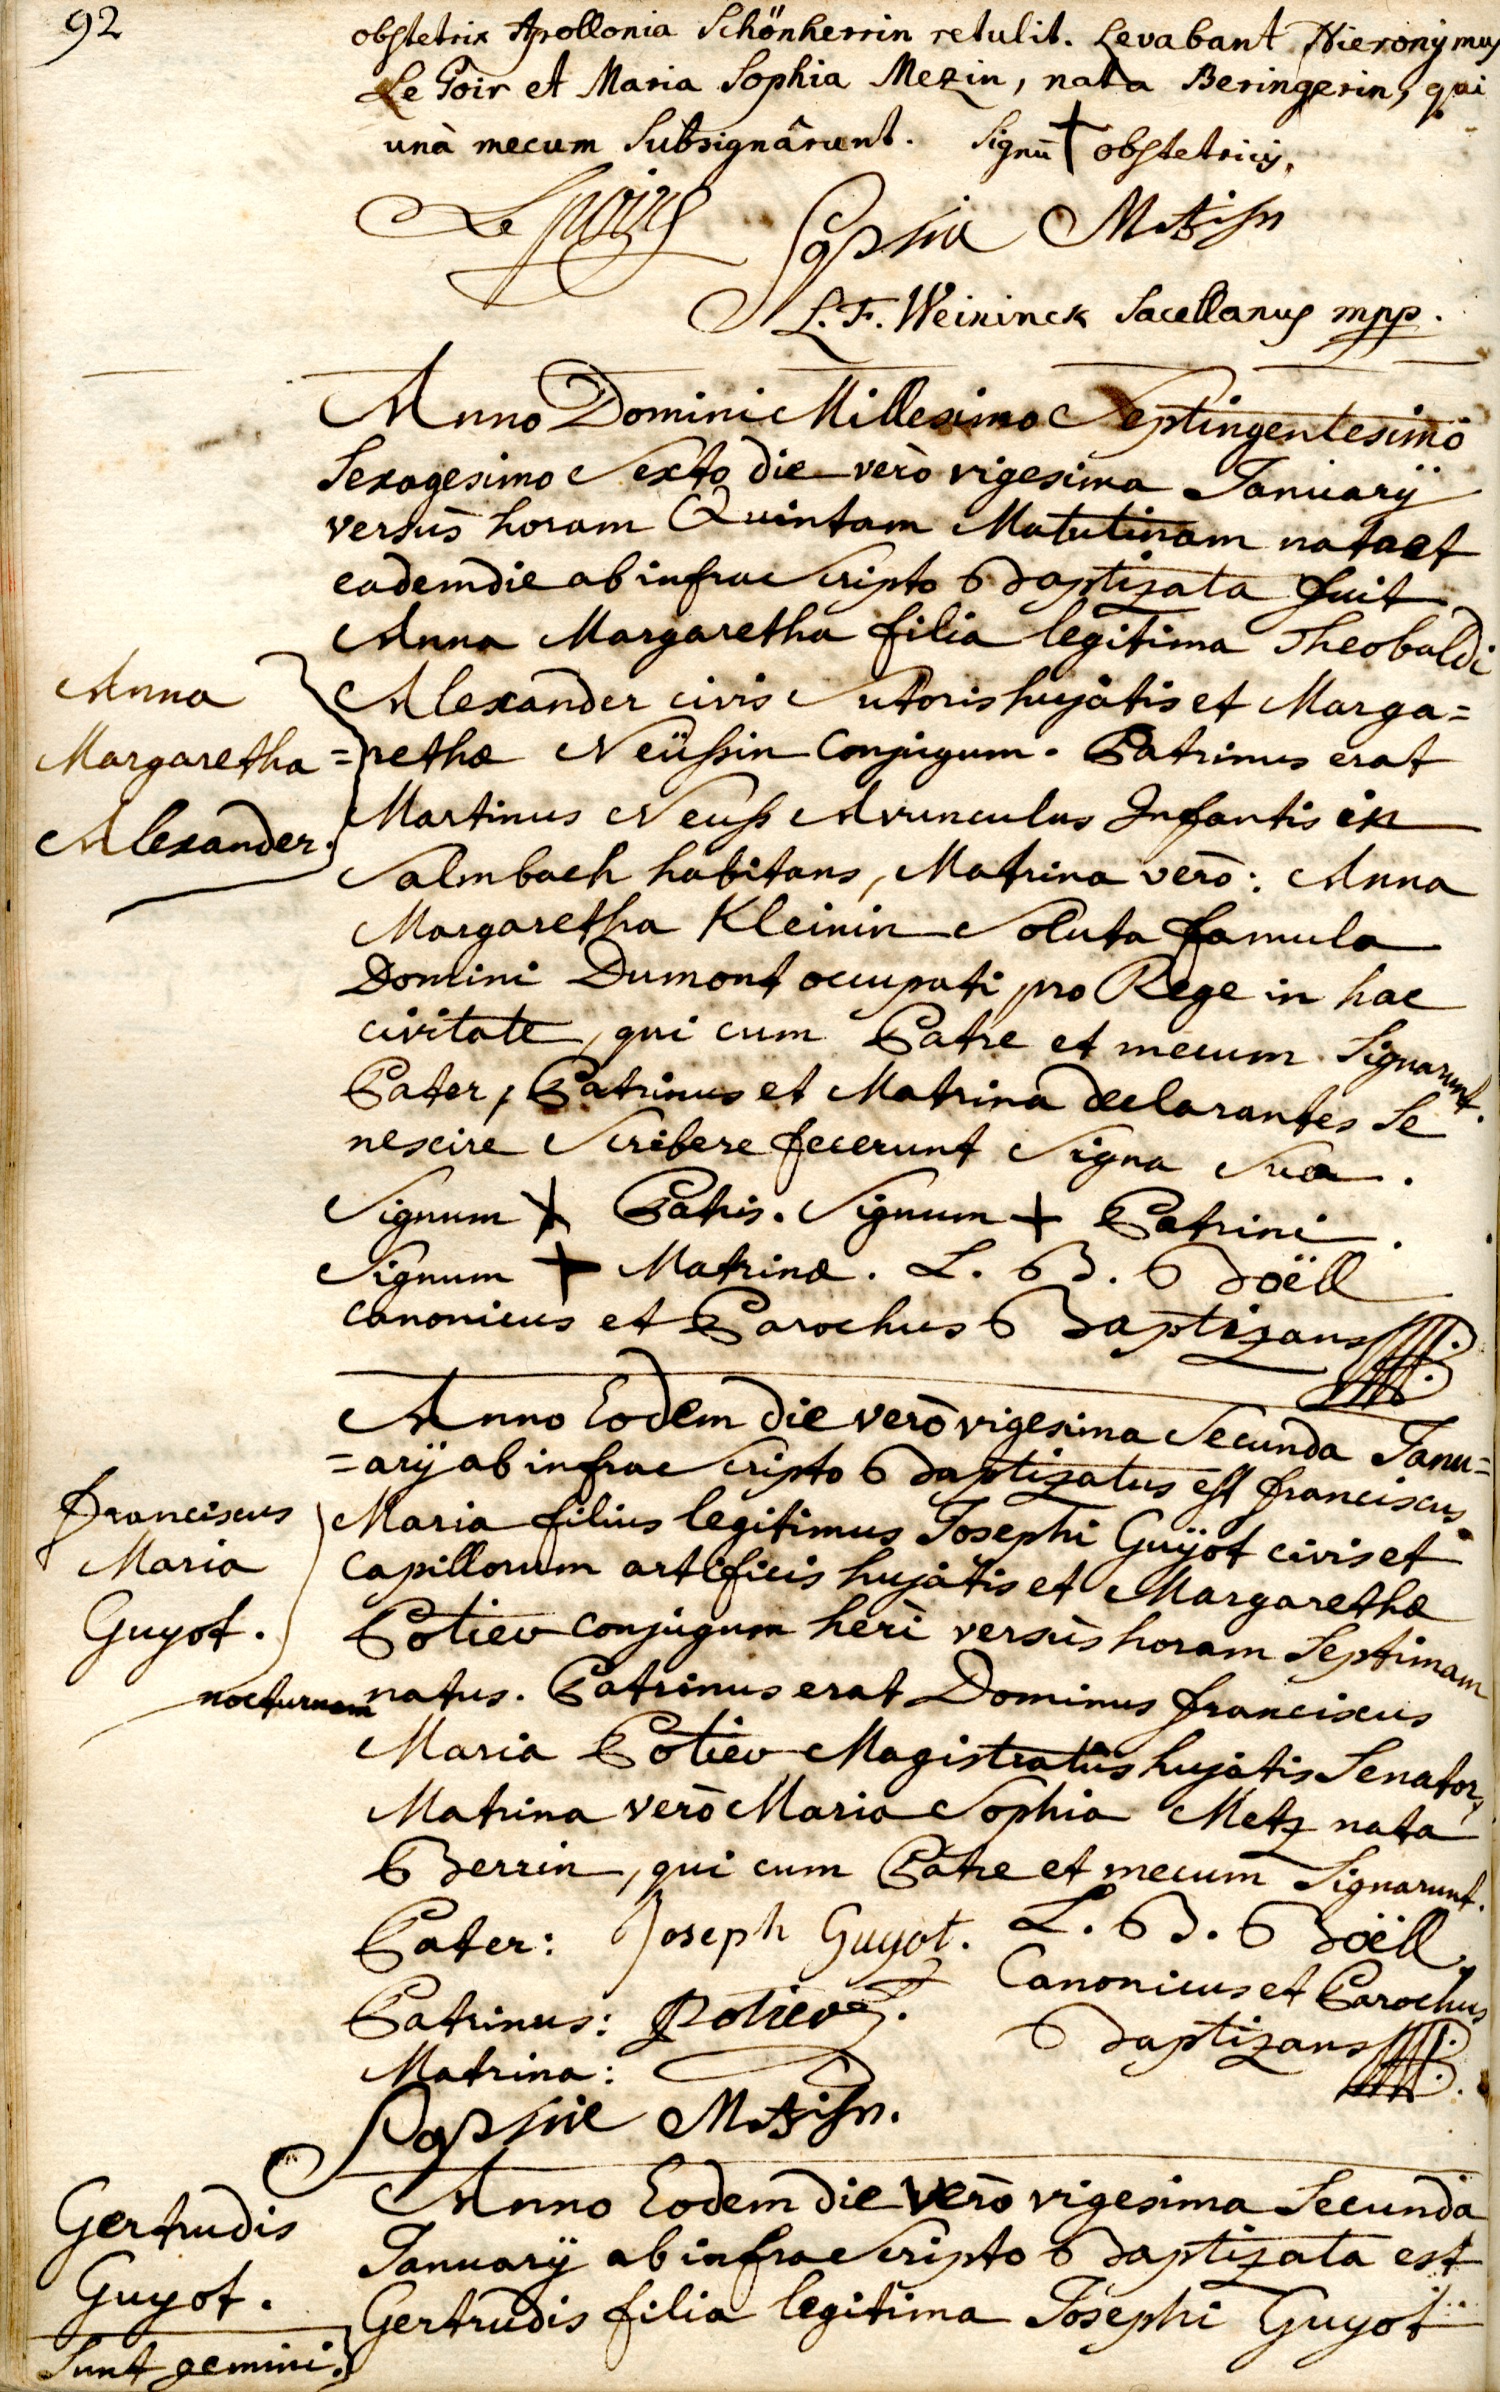 92
obstetrix Apollonia Schönherrin retulit. Levabant Hieronymus
Le Poir et Maria Sophia Mezin, nata Beringerin, qui
unà mecum subsignârunt. Signū † obstetricis.
Sophia Metzin
L. F. Weininck Sacellanus mpp.
Anno Domini Millesimo Septingentesimo
Sexagesimo Sexto die verò vigesima Januarÿ
versùs horam Quintam Matutinam nata et
eadem die ab infra Scripto Baptizata fuit
Anna Margaretha filia legitima Theobaldi
Alexander civis Sutoris hujátis et Marga=
=rethæ Neüssin Conjugum. Patrinus erat
Martinus Neuss Avunculus Infantis in
Salmbach habitans, Matrina verò: Anna
Margaretha Kleinin Soluta famula
Domini Dumont occupati pro Rege in hac
civitate, qui cum Patre et mecum Signarunt.
Pater, Patrinus et Matrina declarantes Se
nescire Scribere fecerunt Signa Sua.
Signum + Patris. Signum + Patrini.
Signum + Matrinæ. L. B. Boëll
canonicus et Parochus Baptizans
Anna
Margaretha
Alexander.
Anno Eodem die verò vigesima Secunda Janu=
=arÿ ab infra Scripto Baptizatus est franciscus
Maria filius legitimus Josephi Guÿot civis et
capillorum artificis hujátis et Margarethæ
Potiev conjugum heri versùs horam Septimam
nocturnam natus. Patrinus erat Dominus franciscus
Maria Potiev Magistratûs hujátis Senator,
Matrina verò Maria Sophia Metz nata
Berrin, qui cum Patre et mecum Signarunt.
Pater: Joseph Guyot. L. B. Boëll
Canonicus et Parochus
Patrinus: Potiev.
Baptizans
Matrina:
Sophie Metzin.
franciscus
Maria
Guyot.
Anno Eodem die verò vigesima Secunda
Januarÿ ab infra Scripto Baptizata est
Gertrudis filia legitima Josephi Guyot
Gertrudis
Guyot.
Sunt gemini.